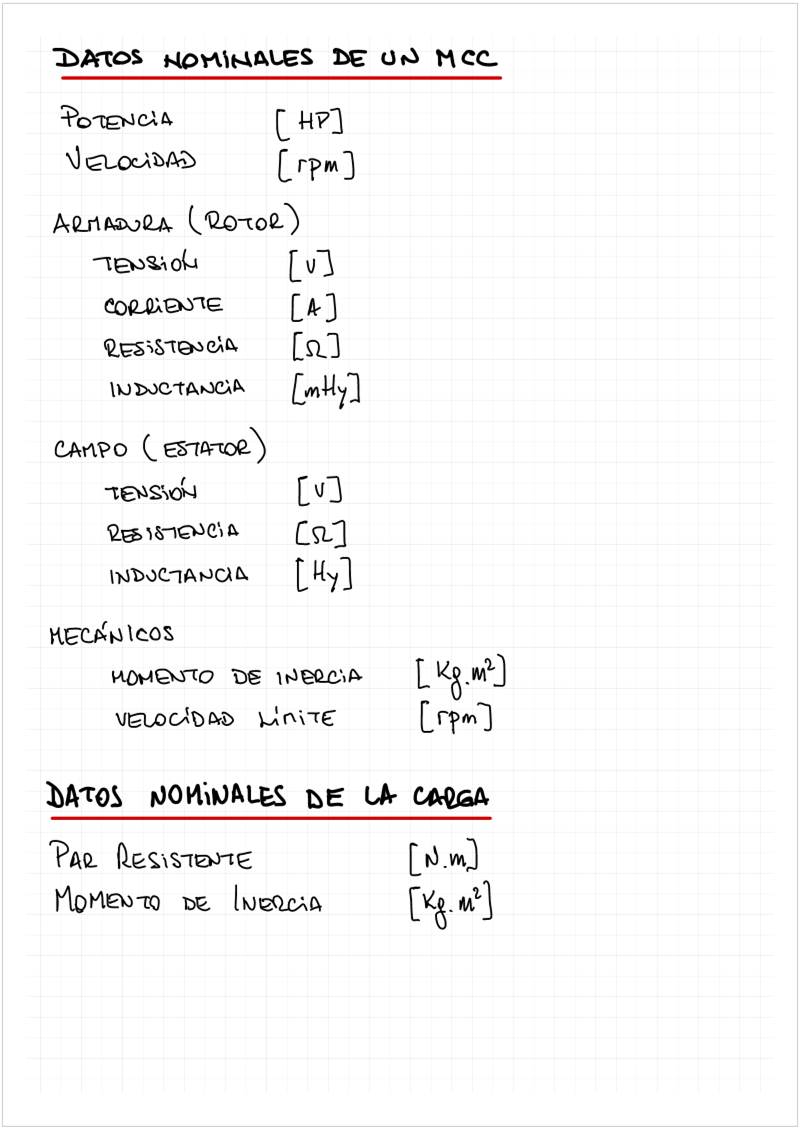 DATOS NOMINALES DE UN MCC
POTENCIA [HP]
VELOCIDAD [rpm]
ARMADURA (ROTOR)
TENSIÓN [V]
CORRIENTE [A]
RESISTENCIA [Ω]
INDUCTANCIA [mHy]
CAMPO (ESTATOR)
TENSIÓN [V]
RESISTENCIA [Ω]
INDUCTANCIA [Hy]
MECÁNICOS
MOMENTO DE INERCIA [Kg.m²]
VELOCIDAD LÍMITE [rpm]
DATOS NOMINALES DE LA CARGA
PAR RESISTENTE [N.m]
MOMENTO DE INERCIA [Kg.m²]